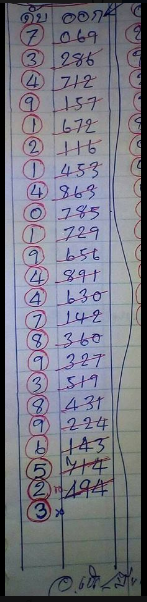 ดับ ออก
7 069
3 286
4 712
9 157
1 672
2 116
1 453
4 863
0 785
1 729
9 656
4 891
4 630
7 142
8 360
9 327
3 519
8 431
9 224
6 143
5 714
2 494
3